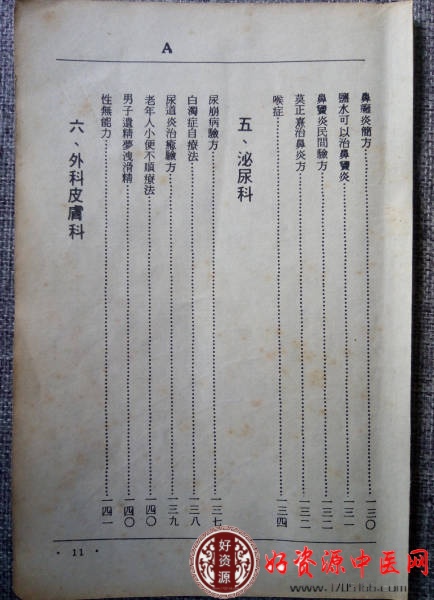 A
鼻竇炎簡方 一三〇
鹽水可以治鼻竇炎 一三一
鼻竇炎民間驗方 一三二
莫正熹治鼻炎方 一三二
喉症 一三四
五、泌尿科
尿崩病驗方 一三七
白濁症自療法 一三八
尿道炎治癒驗方 一三九
老年人小便不順療法 一四〇
男子遺精夢洩滑精 一四〇
性無能力 一四一
六、外科皮膚科
· 11 ·
好资源
好资源中医网